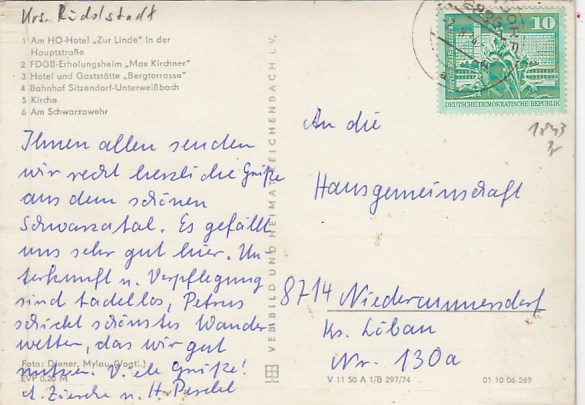 Krs. Rudolstadt
1 Am HO-Hotel „Zur Linde" in der
Hauptstraße
2 FDGB-Erholungsheim „Max Kirchner"
3 Hotel und Gaststätte „Bergterrasse"
4 Bahnhof Sitzendorf-Unterweißbach
5 Kirche
6 Am Schwarzawehr
Ihnen allen senden
wir recht herzliche Grüße
aus dem schönen
Schwarzatal. Es gefällt
uns sehr gut hier. Un-
terkunft u. Verpflegung
sind tadellos, Petrus
schickt schönstes Wander
wetter, das wir gut
nutzen. Viele Grüße!
A. Ziesche u. H. Peschel
Foto: Diener, Mylau (Vogtl.)
EVP 0,20 M
VEB BILD UND HEIMAT REICHENBACH i. V.
10
DEUTSCHE DEMOKRATISCHE REPUBLIK
1843
An die
Hausgemeinschaft
8714 Niedercunnersdorf
Krs. Löbau
Nr. 130a
V 11 50 A 1/B 297/74
01 10 06 269